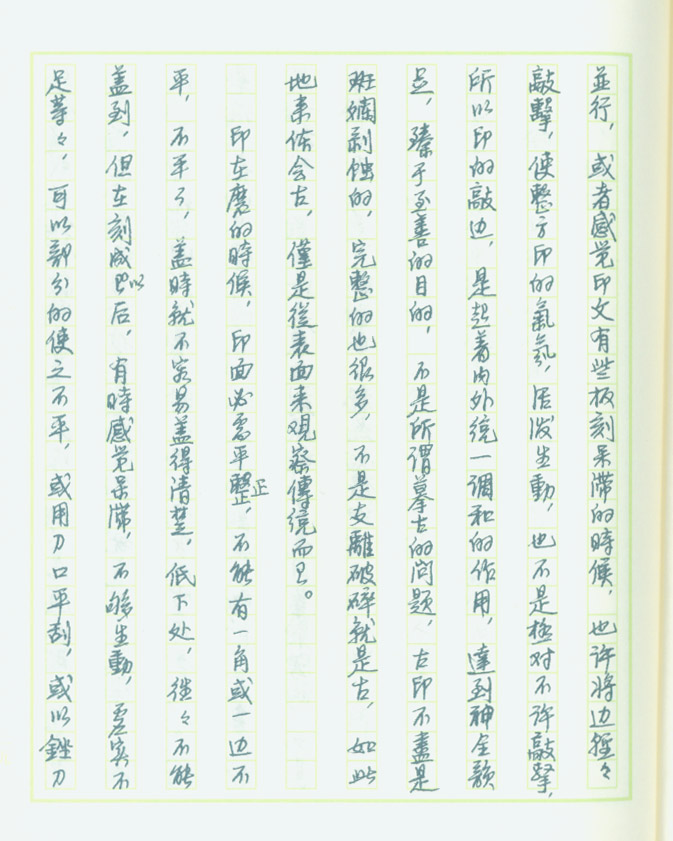 並行，或者感觉印文有些板刻呆滞的時候，也许將边輕々
敲擊，使整方印的氣氛，活泼生動，也不是極对不许敲擊，
所以印的敲边，是起着内外统一调和的作用，達到神全韻
足，臻于至善的目的，不是所谓摹古的问题，古印不盡是
斑斓剥蚀的，完整的也很多，不是支離破碎就是古，如此
地来体会古，僅是從表面来观察傳统而已。
印在磨的時候，印面必需平整正，不能有一角或一边不
平，不平了，盖時就不容易盖得清楚，低下处，往々不能
盖到，但在刻成以后，有時感觉呆滞，不够生動，虚实不
足等々，可以部分的使之不平，或用刀口平刮，或以銼刀